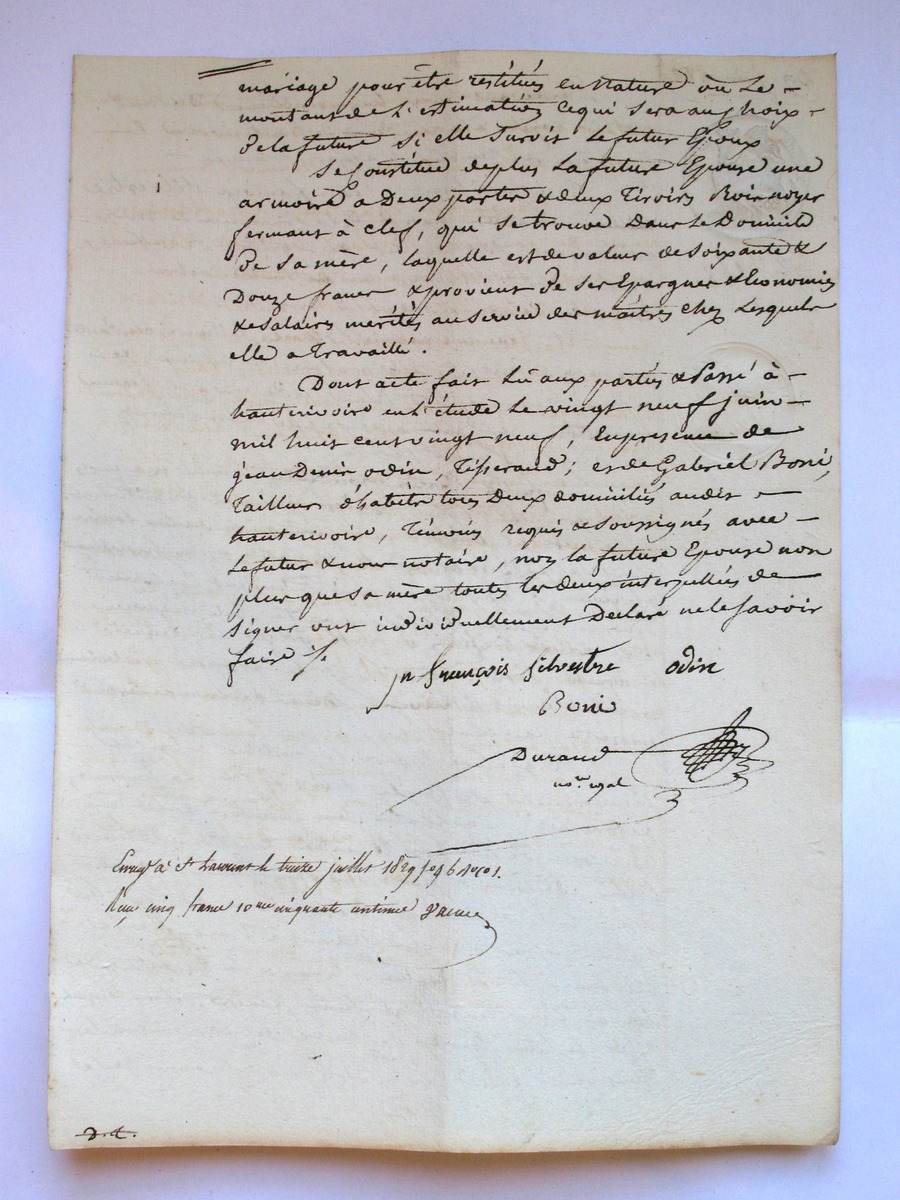 mariage pour être restitués en nature ou le
montant de l'estimation ce qui sera au choix
de la future si elle survit le futur Epoux
Se Constitue de plus la future Epouse une
armoire a Deux portes & deux Tiroirs Bois noyer
fermant à clef, qui se trouve Dans le Domicile
de sa mère, laquelle est de valeur de soixante &
Douze francs & provient de ses Epargnes & Economies
& de salaires mérités au service des maîtres chez lesquels
elle a Travaillé.
Dont acte fait lu aux parties & Passé à
hauterivoire en l'étude le vingt neuf juin
mil huit cent vingt neuf, En presence de
jean Denis odin, Tisserand; et de Gabriel Boni,
Tailleur d'habits tous Deux domiciliés audit
hauterivoire, Témoins requis & soussignés avec
le futur & nous notaire, non la future Epouse non
plus que sa mère toutes les deux interpellées de
signer ont individuellement Déclaré ne le savoir
faire
jn françois Silvestre odin
Boni
Durand
nore royal
Enregé à St Laurent le treize juillet 1829 fo 96
Reçu cinq francs 10me cinquante centimes